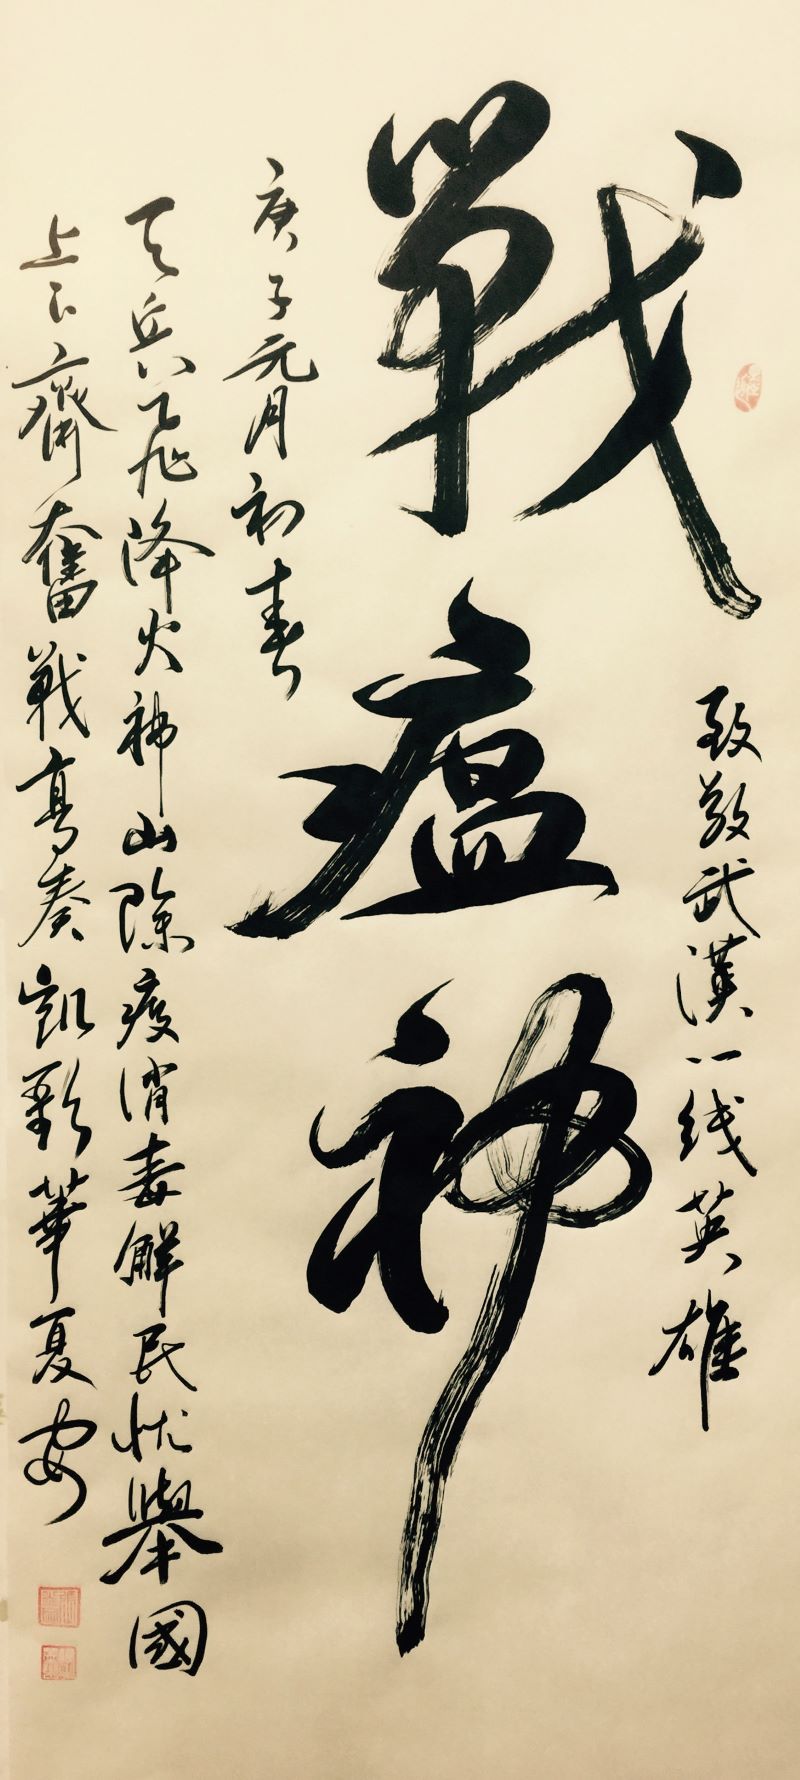 致敬武漢一线英雄
戰瘟神
庚子元月初春
天兵飛降火神山除疫消毒解民忧舉國
上下齊奮戰高奏凱歌華夏安